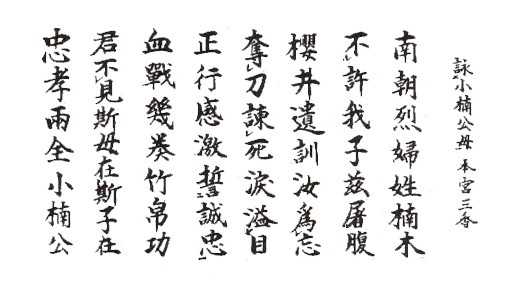 詠小楠公母 本宮三香
南朝烈婦姓楠木
不許我子茲屠腹
櫻井遺訓汝爲忘
奪刀諫死涙溢目
正行感激誓誠忠
血戰幾奏竹帛功
君不見斯母在斯子在
忠孝兩全小楠公